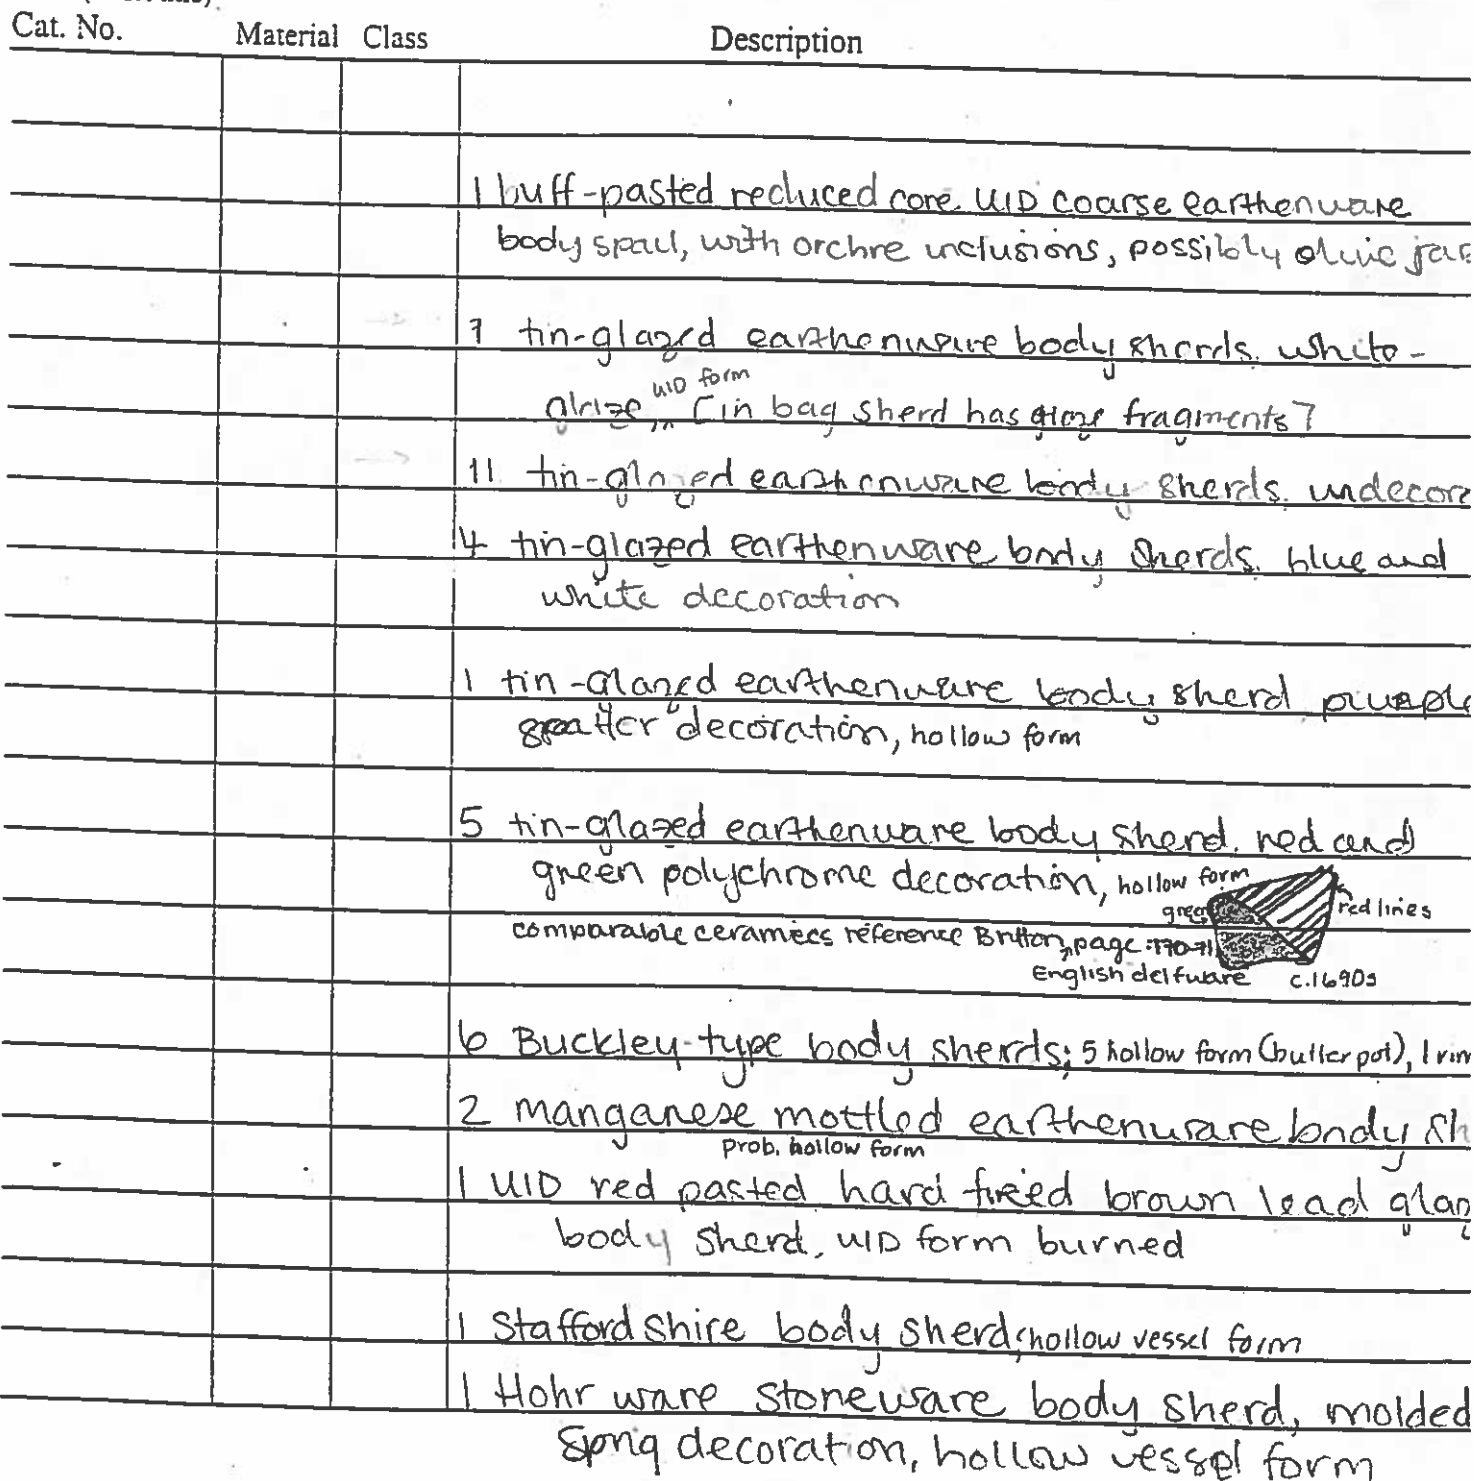 Cat. No. Material Class Description
1 buff-pasted reduced core UID coarse earthenware
body spall, with orchre inclusions, possibly olive jar
7 tin-glazed earthenware body sherds. white-
glaze, UID form [in bag sherd has glaze fragments]
11 tin-glazed earthenware body sherds. undecora
4 tin-glazed earthenware body sherds. blue and
white decoration
1 tin-glazed earthenware body sherd purple
spatter decoration, hollow form
5 tin-glazed earthenware body sherd. red and
green polychrome decoration, hollow form
green red lines
comparable ceramics reference Britton, page: 170-71
English delfware c.1690s
6 Buckley-type body sherds; 5 hollow form (butter pot), 1 rim
2 manganese mottled earthenware body sh
prob. hollow form
1 UID red pasted hard fired brown lead glaz
body sherd, UID form burned
1 Staffordshire body sherd; hollow vessel form
1 Hohr ware stoneware body sherd, molded
sprig decoration, hollow vessel form